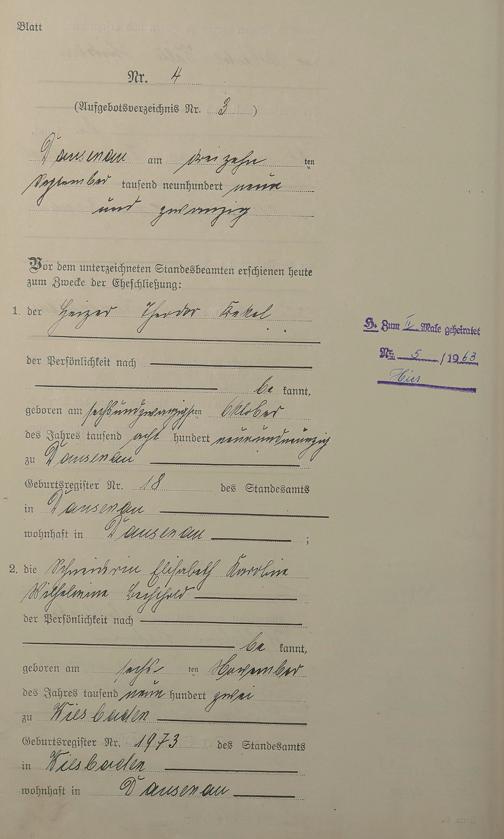 Blatt
Nr. 4
(Aufgebotsverzeichnis Nr. 3 )
Dausenau am dreizehn ten
September tausend neunhundert neun
und zwanzig
Vor dem unterzeichneten Standesbeamten erschienen heute
zum Zwecke der Eheschließung:
1. der Heizer Theodor
der Persönlichkeit nach
be kannt,
geboren am sechsundzwanzigsten Oktober
des Jahres tausend acht hundert neunundneunzig
zu Dausenau
Geburtsregister Nr. 18 des Standesamts
in Dausenau
wohnhaft in Dausenau ;
2. die Schneiderin Elisabeth Karoline
Wilhelmine Bechthold
der Persönlichkeit nach
be kannt,
geboren am sechs ten November
des Jahres tausend neun hundert zwei
zu Wiesbaden
Geburtsregister Nr. 1973 des Standesamts
in Wiesbaden
wohnhaft in Dausenau
Zum II Male geheiratet
Nr. 5 /1963